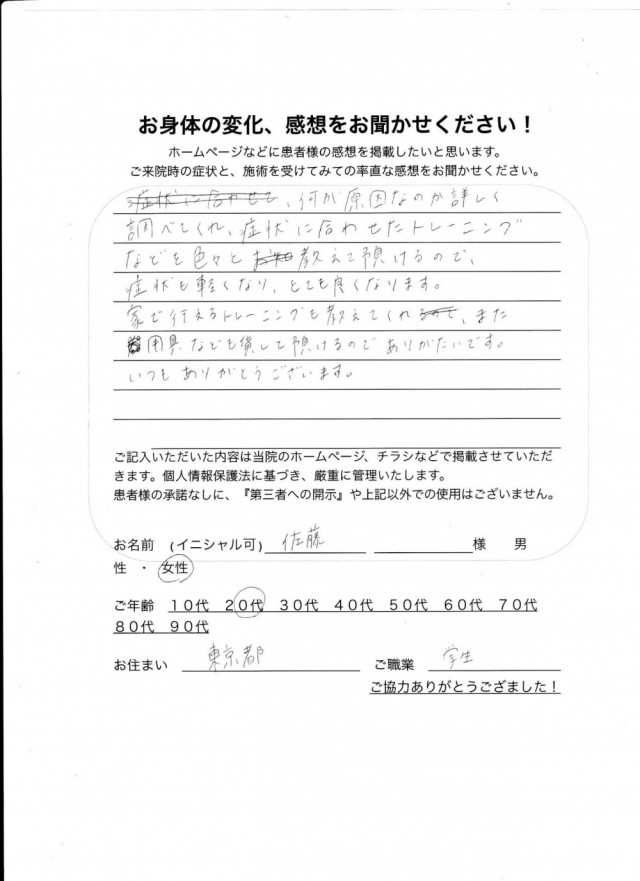 お身体の変化、感想をお聞かせください！
ホームページなどに患者様の感想を掲載したいと思います。
ご来院時の症状と、施術を受けてみての率直な感想をお聞かせください。
症状に合わせて、何が原因なのか詳しく
調べてくれ、症状に合わせたトレーニング
などを色々と教えて頂けるので、
症状も軽くなり、とても良くなります。
家で行えるトレーニングも教えてくれるので、また
用具なども貸して頂けるのでありがたいです。
いつもありがとうございます。
ご記入いただいた内容は当院のホームページ、チラシなどで掲載させていただ
きます。個人情報保護法に基づき、厳重に管理いたします。
患者様の承諾なしに、『第三者への開示』や上記以外での使用はございません。
お名前 (イニシャル可) 佐藤 様 男
性 ・ 女性
ご年齢 10代 20代 30代 40代 50代 60代 70代
80代 90代
お住まい 東京都 ご職業 学生
ご協力ありがとうござました！